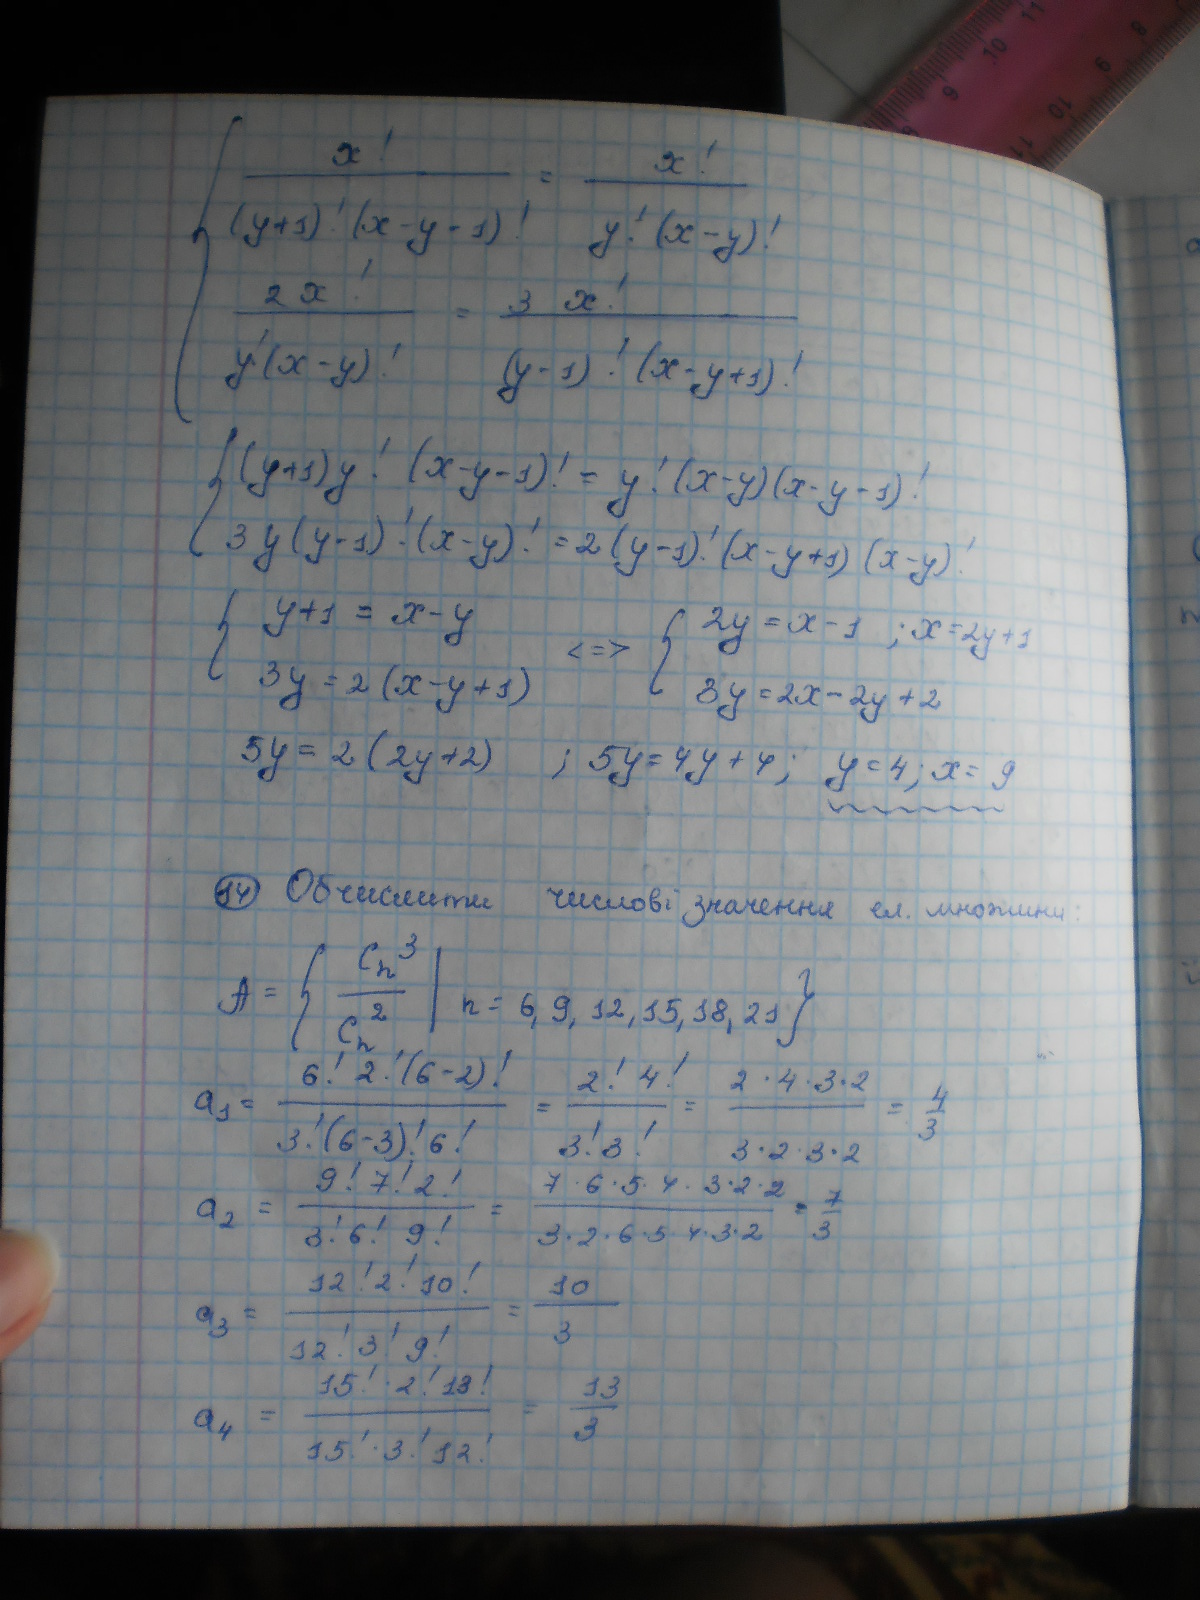 x! / ((y+1)! (x-y-1)!) = x! / (y! (x-y)!)
2x! / (y! (x-y)!) = 3 x! / ((y-1)! (x-y+1)!)
(y+1)y! (x-y-1)! = y! (x-y)(x-y-1)!
3y(y-1)! (x-y)! = 2(y-1)! (x-y+1)(x-y)!
y+1 = x-y <=> 2y = x-1 ; x=2y+1
3y = 2(x-y+1) 3y = 2x-2y+2
5y = 2(2y+2) ; 5y = 4y+4; y=4; x=9
14 Обчислити числові значення ел. множини:
A = { C_n^3 / C_n^2 | n = 6, 9, 12, 15, 18, 21 }
a1 = 6! 2! (6-2)! / 3! (6-3)! 6! = 2! 4! / 3! 3! = 2·4·3·2 / 3·2·3·2 = 4/3
a2 = 9! 7! 2! / 3! 6! 9! = 7·6·5·4·3·2·2 / 3·2·6·5·4·3·2 = 7/3
a3 = 12! 2! 10! / 12! 3! 9! = 10/3
a4 = 15! · 2! 13! / 15! · 3! 12! = 13/3
9 10 11
6 8
10 11